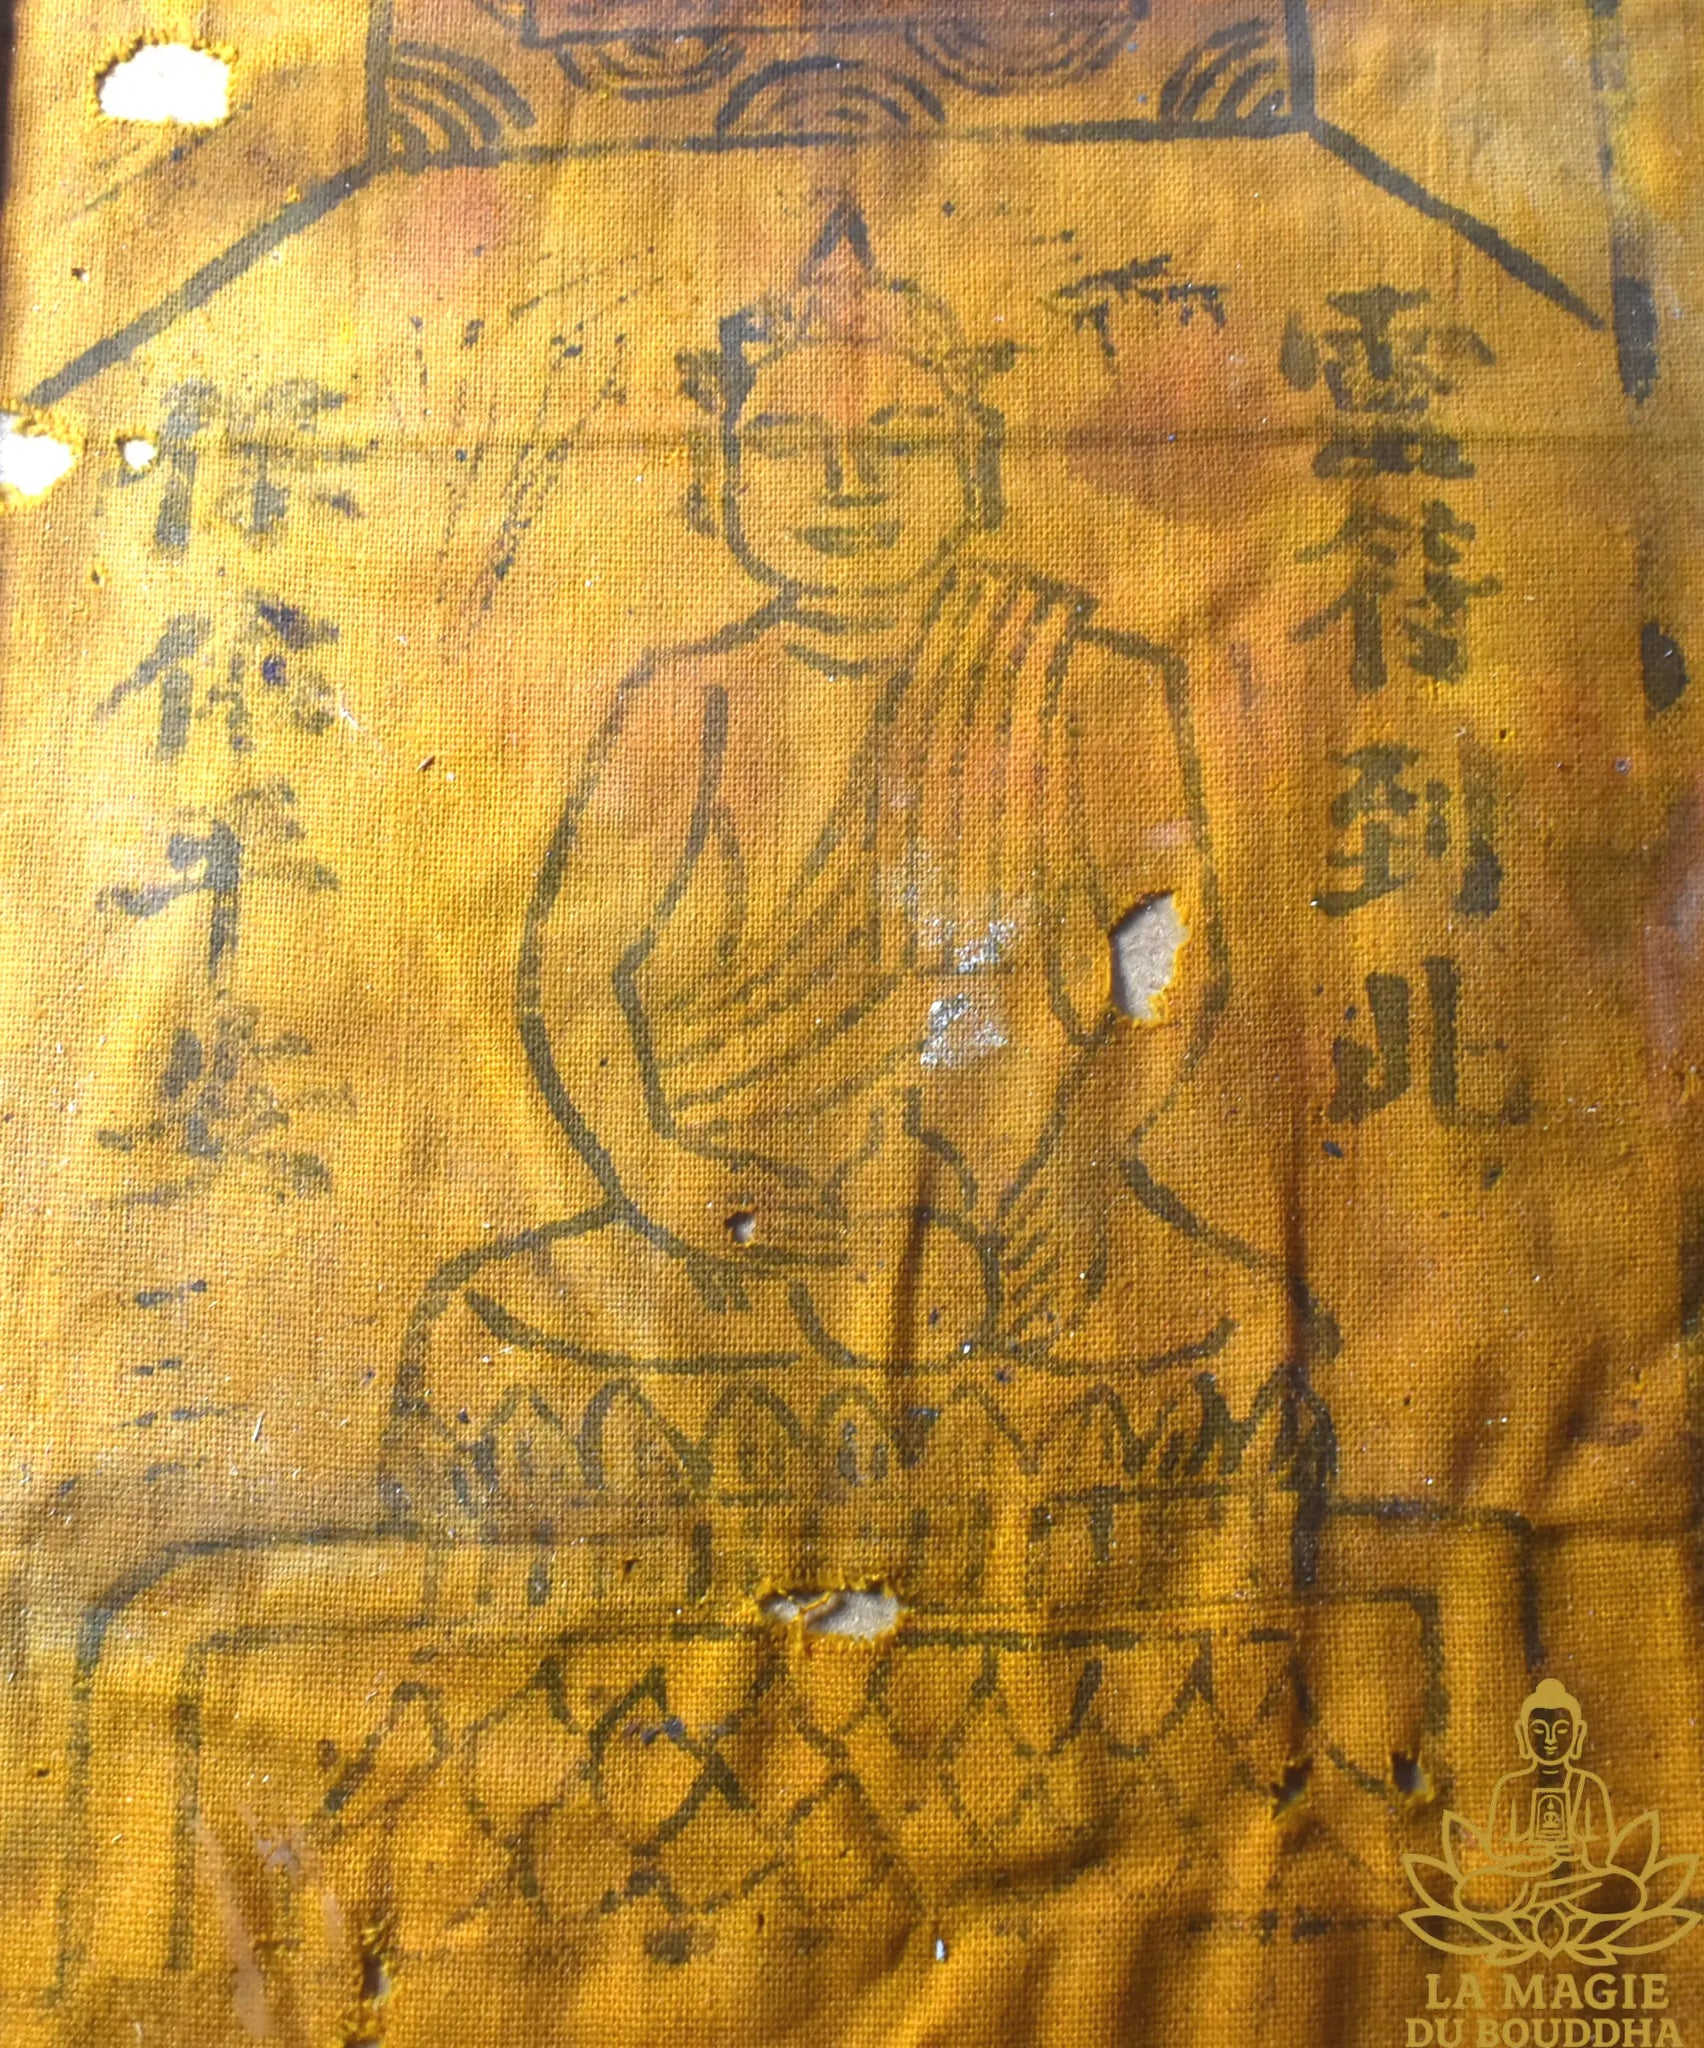 霊符到此
保
平安
LA MAGIE
DU BOUDDHA